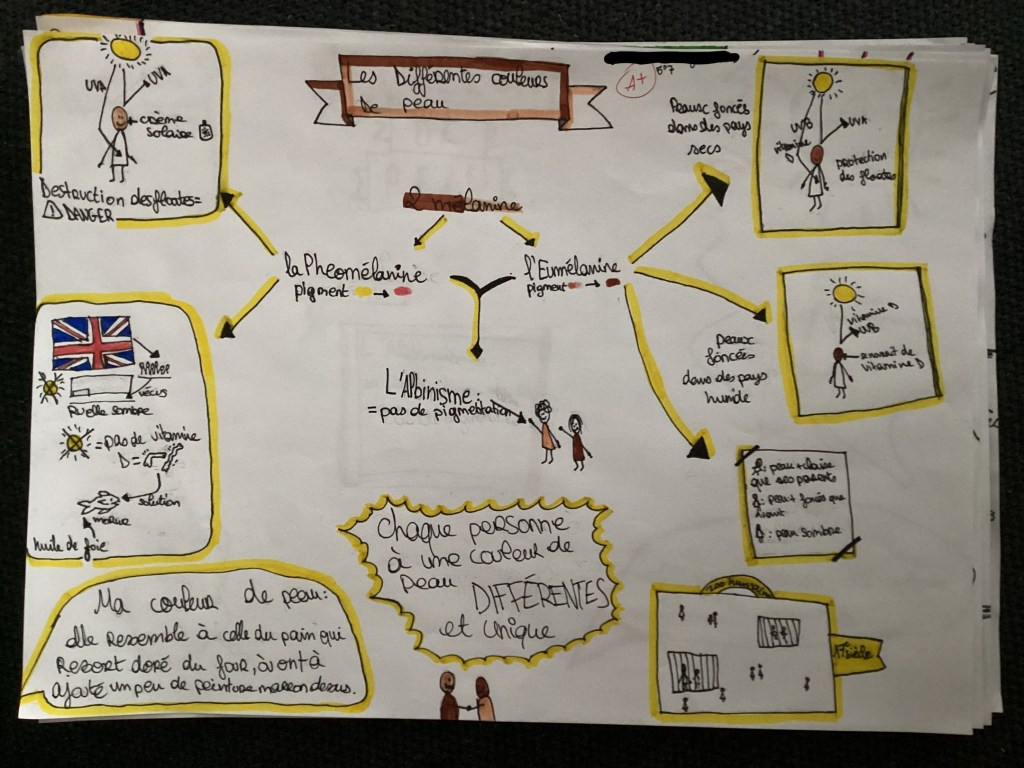 les Différentes couleurs
De peau
A+
507
UVB
UVA
crème
solaire
Destruction des floates=
DANGER
mélanine
la Pheomélanine
pigment
l'Eumélanine
pigment
Peaux foncés
dans des pays
secs
UVB
UVA
vitamine
D
protection
des floates
Peaux
foncées
dans des pays
humide
vitamine D
UVB
vitamine D
L'Albinisme:
=pas de pigmentation
Ruelle sombre
=pas de vitamine
D=
solution
morue
huile de foie
peau + claire
que ses parents
peau + foncés que
avant
peau sombre
Chaque personne
à une couleur de
peau DIFFÉRENTES
et unique
Ma couleur de peau:
elle ressemble à celle du pain qui
Resort doré du four, à ont à
ajouté un peu de peinture marron dessus.
siècle